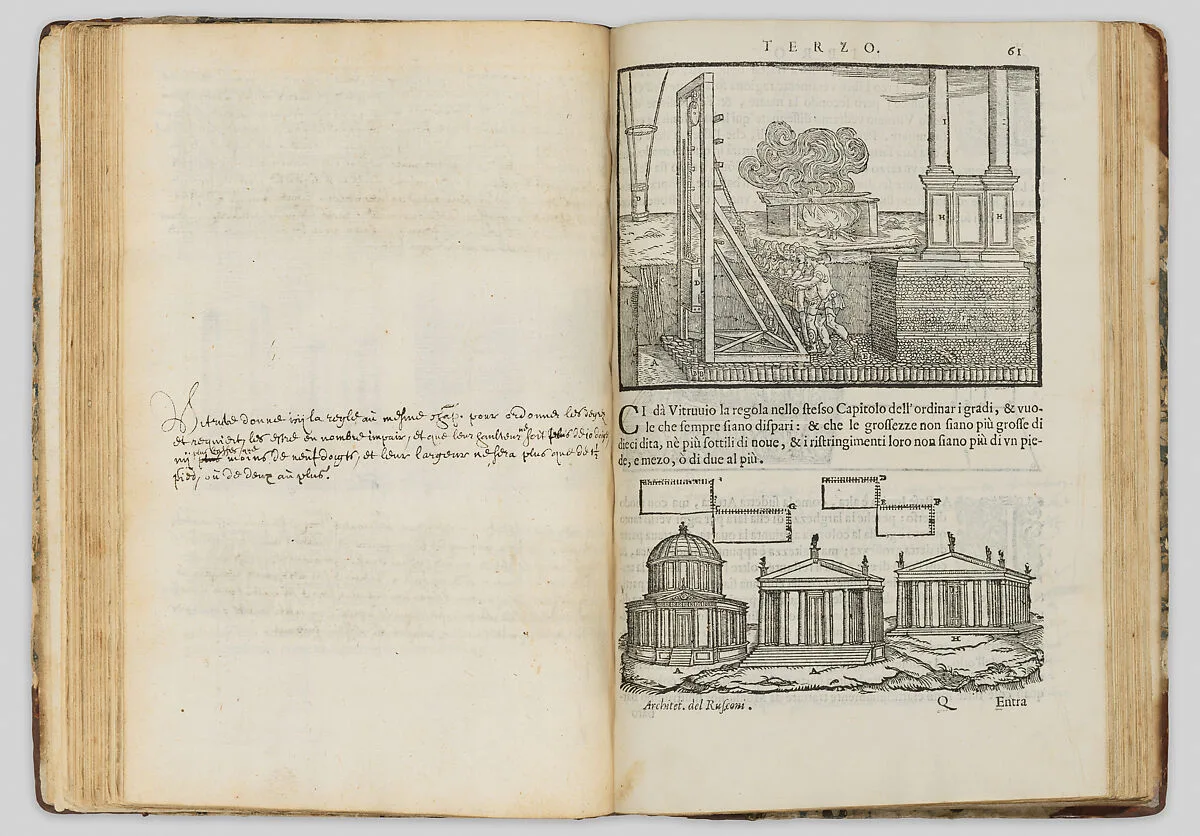 Vitruve donne icy la regle au mesme chap. pour ordonner les degrez
et requiert les estre en nombre impair, et que leur haulteur ne soit plus de 10 doigts
ny moins de neuf doigts, et leur largeur ne sera plus que de
pied, ou de deux au plus.
TERZO. 61
I H H D A
CI dà Vitruuio la regola nello stesso Capitolo dell'ordinar i gradi, & vuo-
le che sempre siano dispari: & che le grossezze non siano più grosse di
dieci dita, nè più sottili di noue, & i ristringimenti loro non siano più di vn pie-
de, e mezo, ò di due al più.
G F
A A H
Architet. del Rusconi. Q Entra